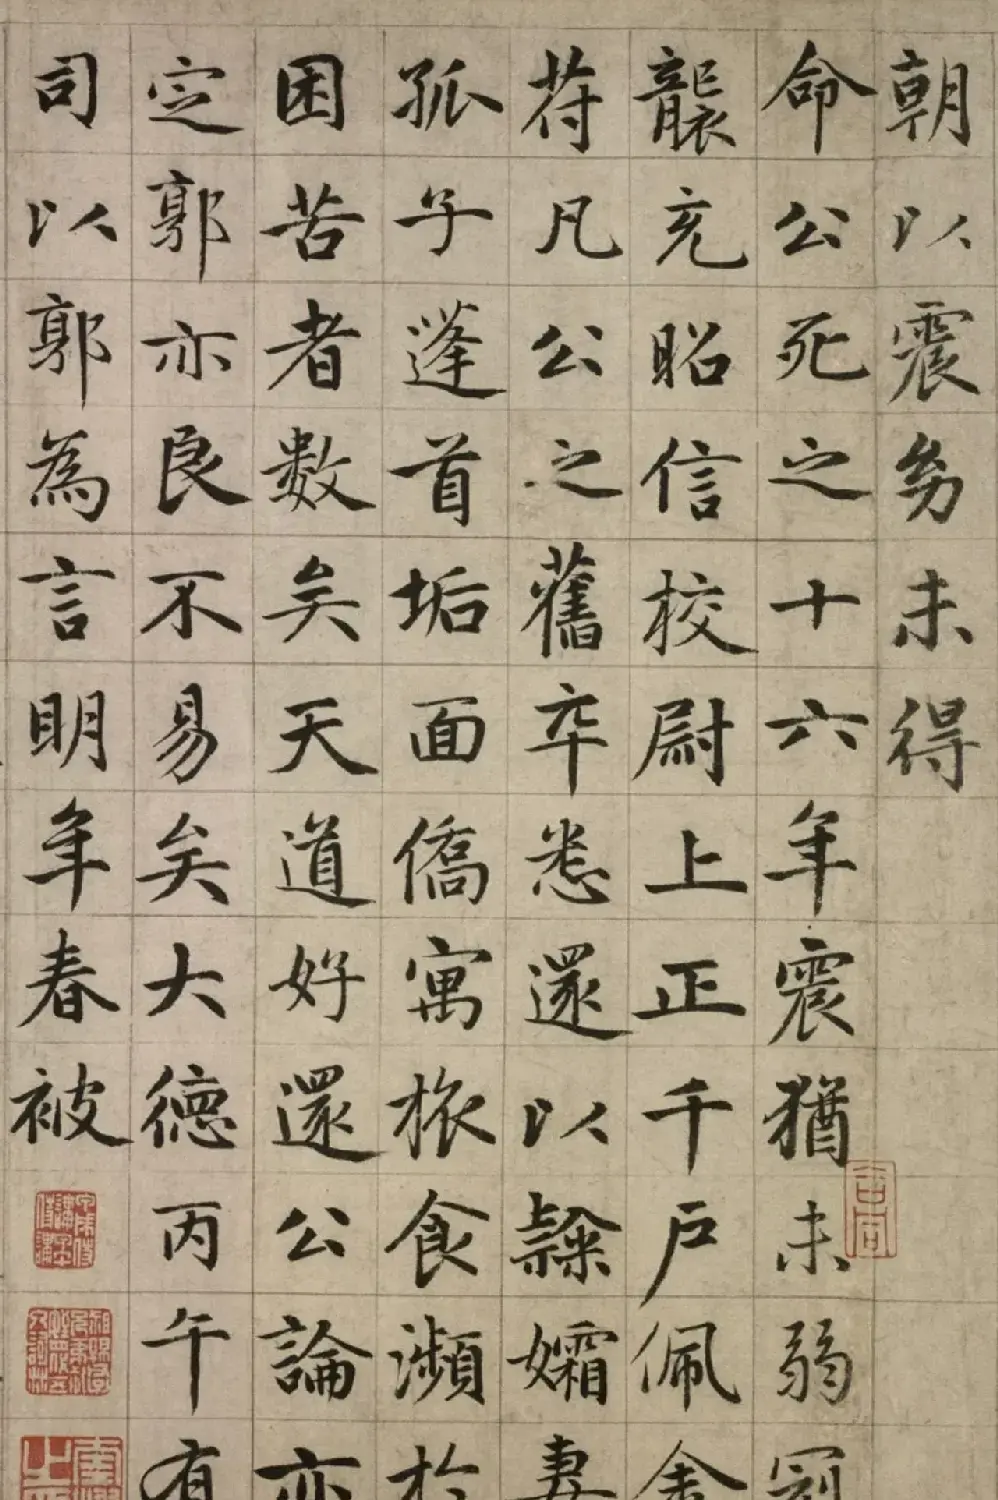 朝以震㓜未得
命公死之十六年震猶未弱冠
襲充昭信校尉上正千戶佩金
符凡公之舊卒悉還以隸孀妻
孤子蓬首垢面僑寓旅食瀕於
困苦者数矣天道好還公論亦
定郭亦良不易矣大德丙午有
司以郭為言明年春被